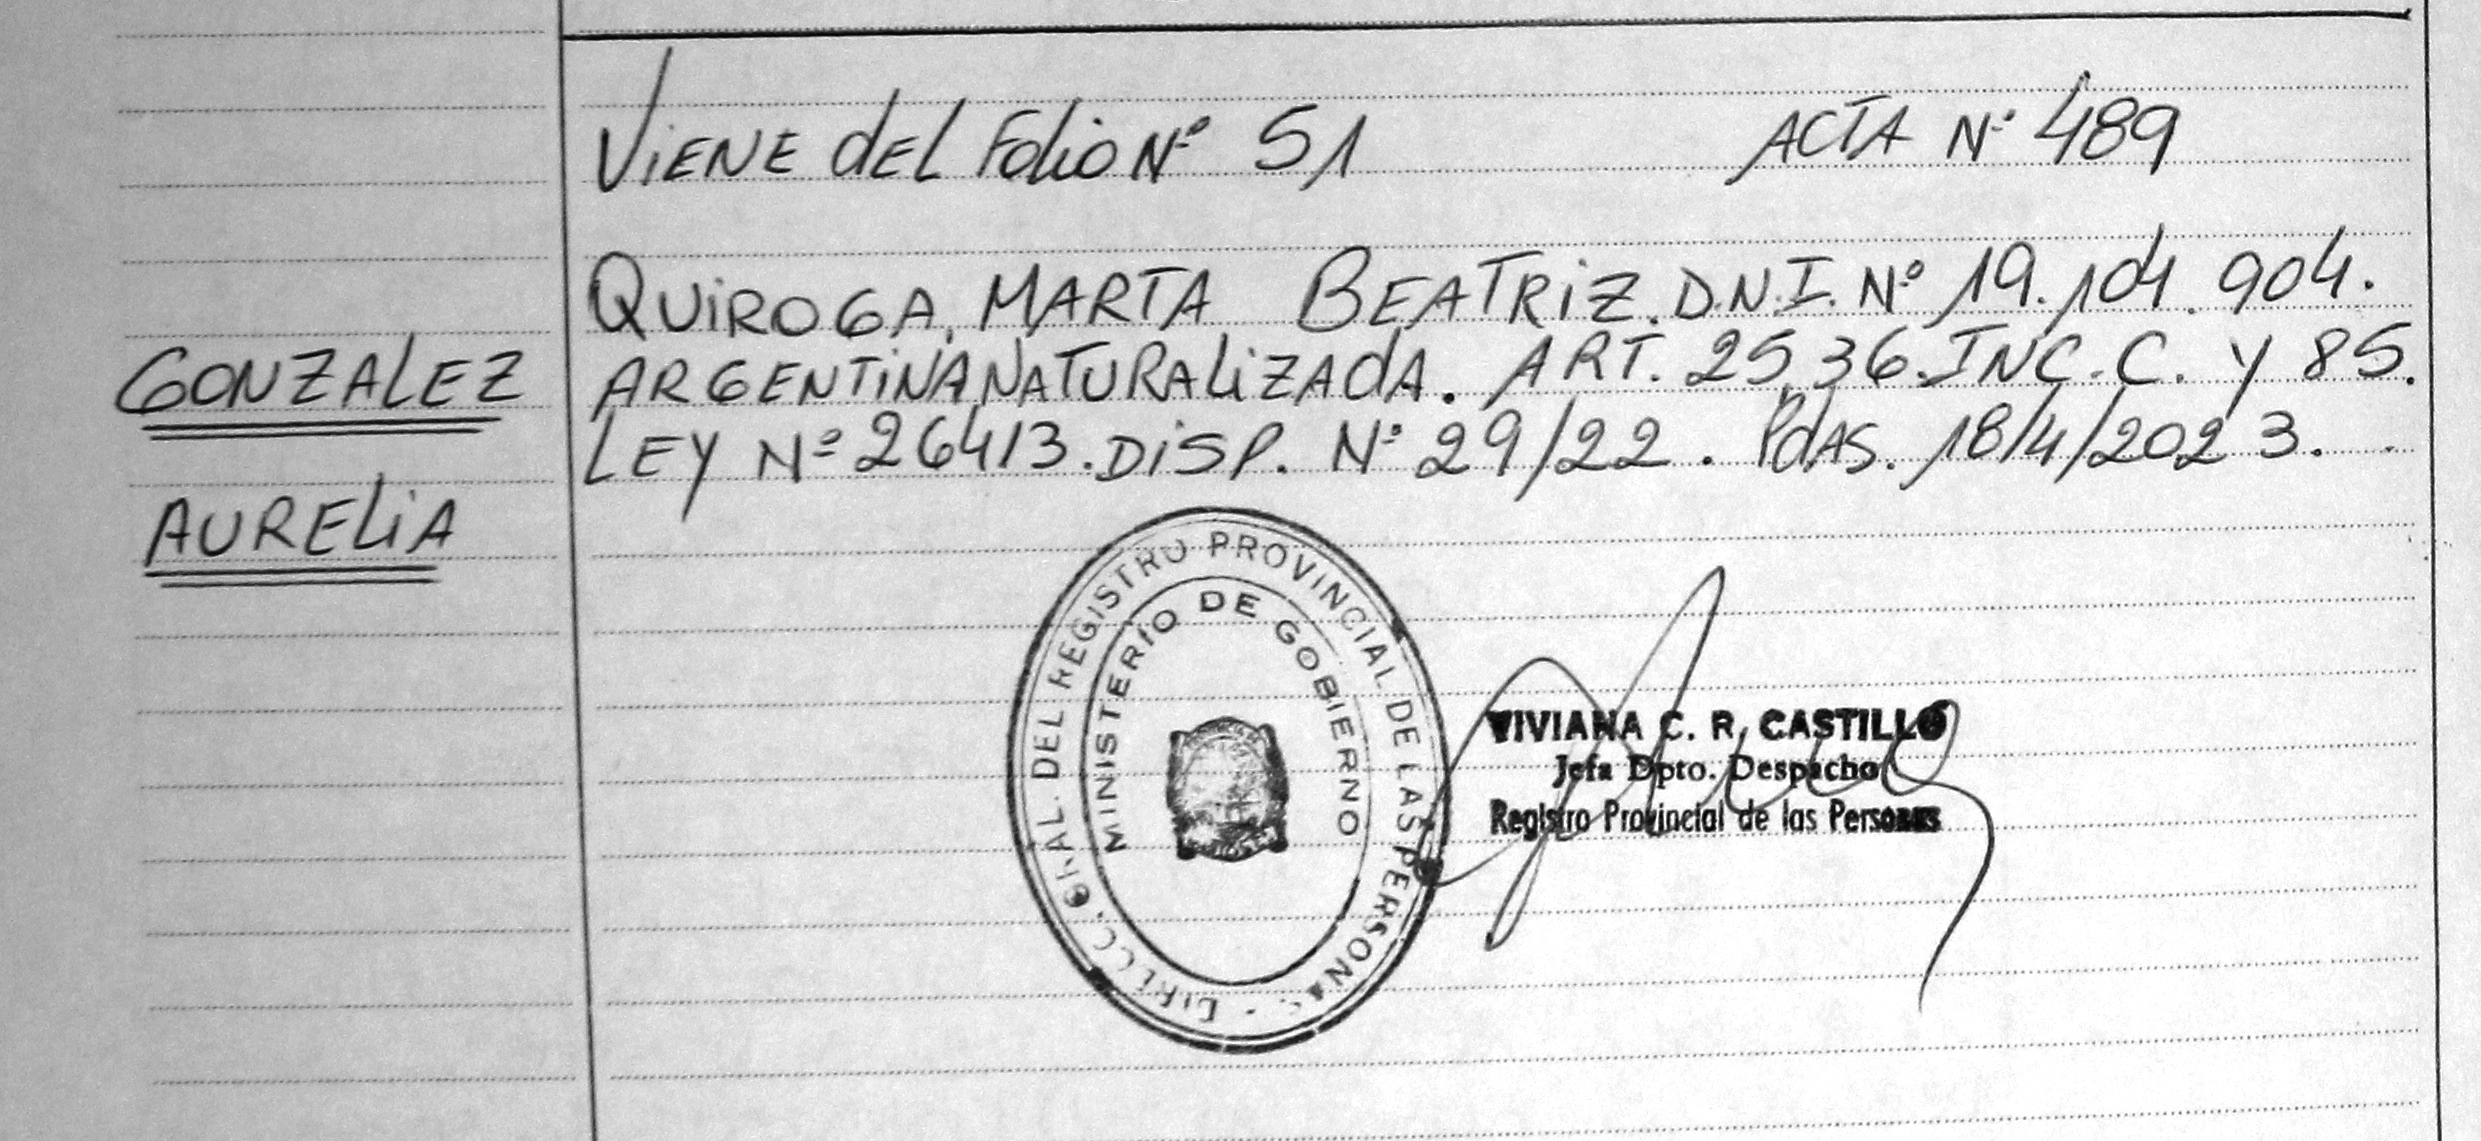 VIENE dEL Folio Nº 51 ACTA Nº 489
QUIROGA, MARTA BEATRIZ. D.N.I. Nº 19.104.904.
ARGENTINA NATURALIZADA. ART. 25,36. INC. C. Y 85.
LEY Nº 26413. DISP. Nº 29/22. PdAS. 18/4/2023.
GONZALEZ
AURELIA
GRAL. DEL REGISTRO PROVINCIAL DE LAS PERSONAS
MINISTERIO DE GOBIERNO
VIVIANA C. R. CASTILLO
Jefa Dpto. Despacho
Registro Provincial de las Personas